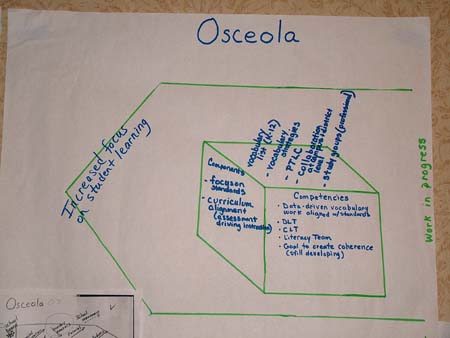 Osceola
Increased focus
on student learning
Components
- focus on
standards
- curriculum
alignment
(assessment
driving instruction)
- vocabulary
list (K-12)
- vocabulary
strategies
- PTLC
- collaboration
across district
- study groups (professional)
Competencies
• Data-driven vocabulary
work aligned w/standards
• DLT
• CLT
• Literacy Team
• Goal to create coherence
(still developing)
Work in progress
Osceola